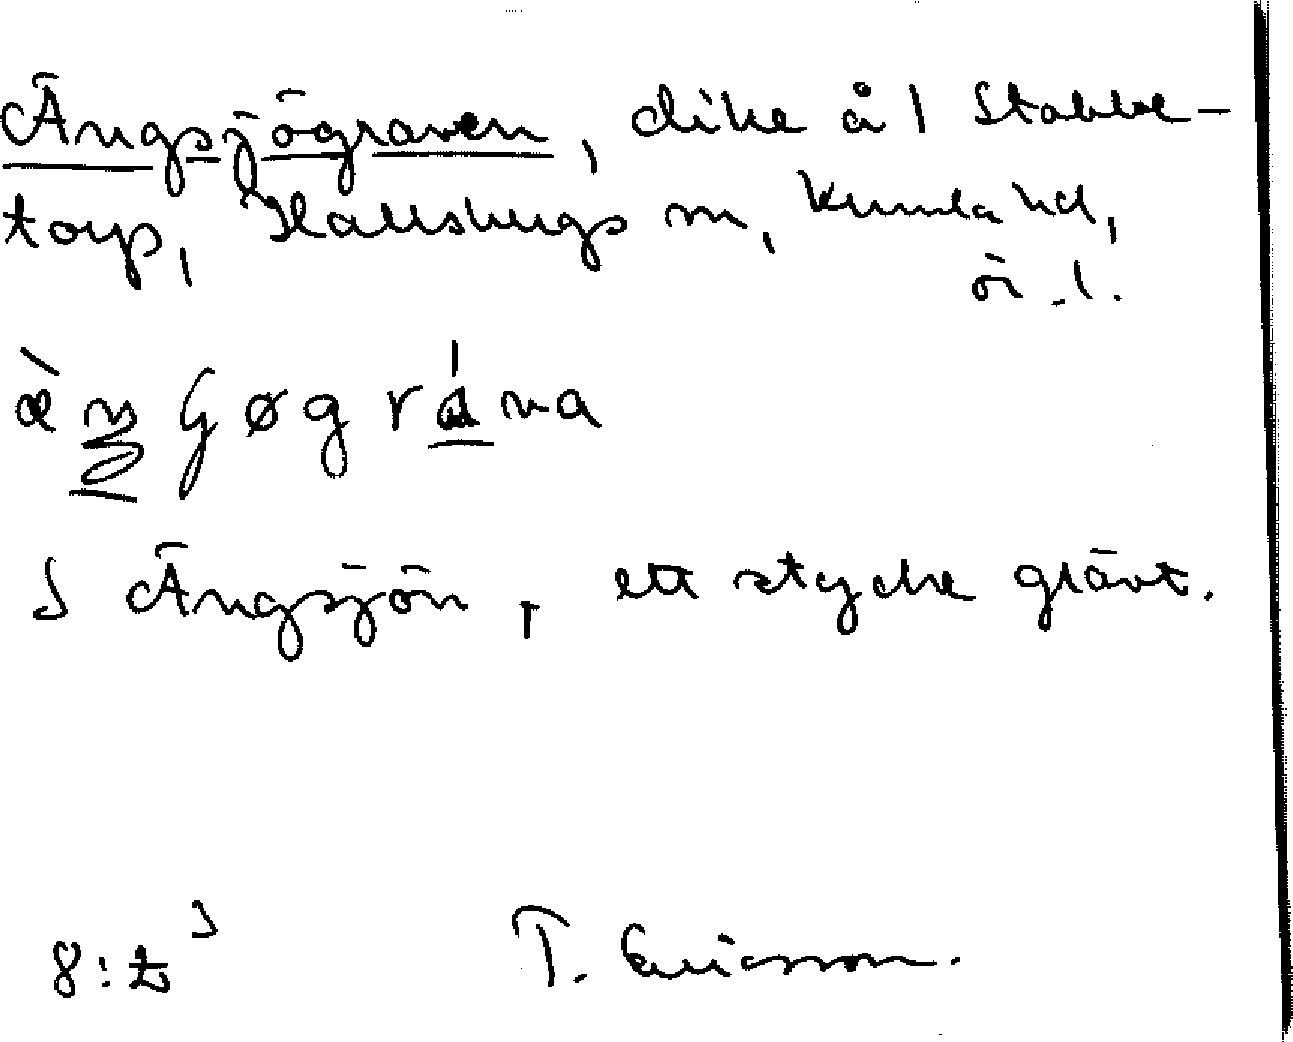 Ängsjögraven, dike å 1 Stabbe-
torp, Hallsbergs sn, Kumla hd,
ör. l.
S Ängsjön, ett stycke grävt.
8:
T. Ericsson.